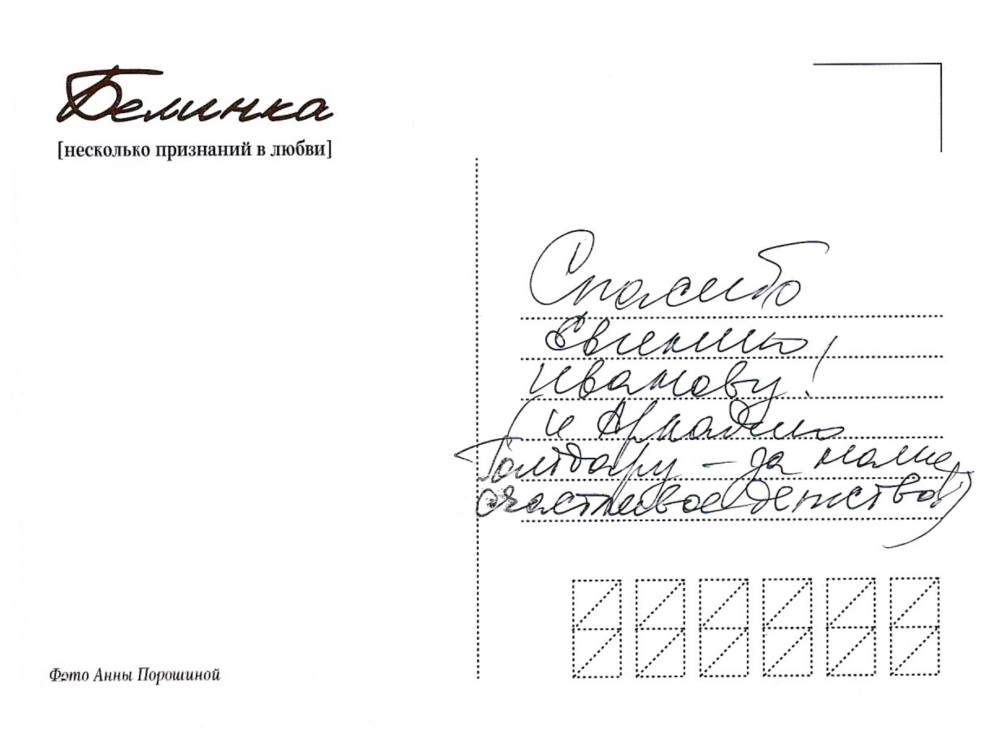 Белинка
[несколько признаний в любви]
Спасибо
Евгению
Иванову!
(и Аркадию
Гайдару – за наше
счастливое детство)
Фото Анны Порошиной